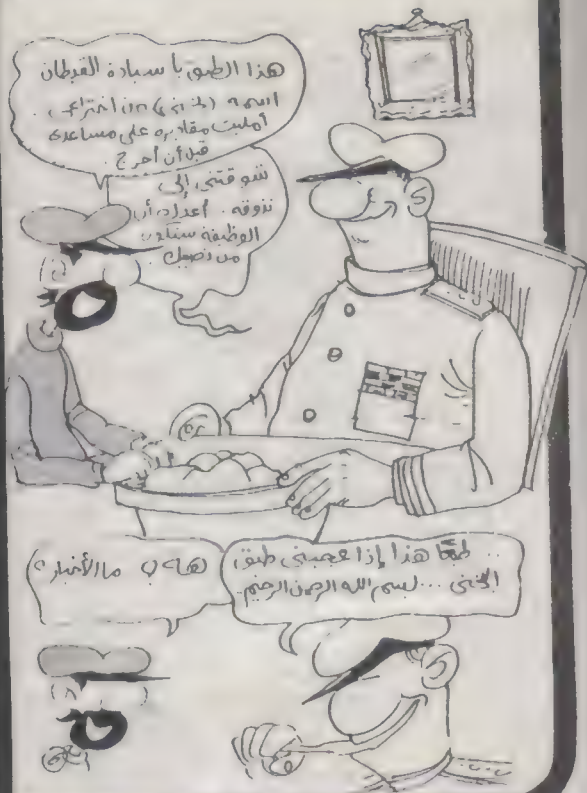 هذا الطبق يا سيادة القبطان
اسمه (الجني) من اختراعي.
أمليت مقاديره على مساعدي
قبل أن أخرج.
شوقتني إلى
تذوقه. أعدك أن
الوظيفة ستكون
من نصيبك.
طبعًا هذا إذا عجبني طبق
الجني... بسم الله الرحمن الرحيم.
ما الأخبار؟